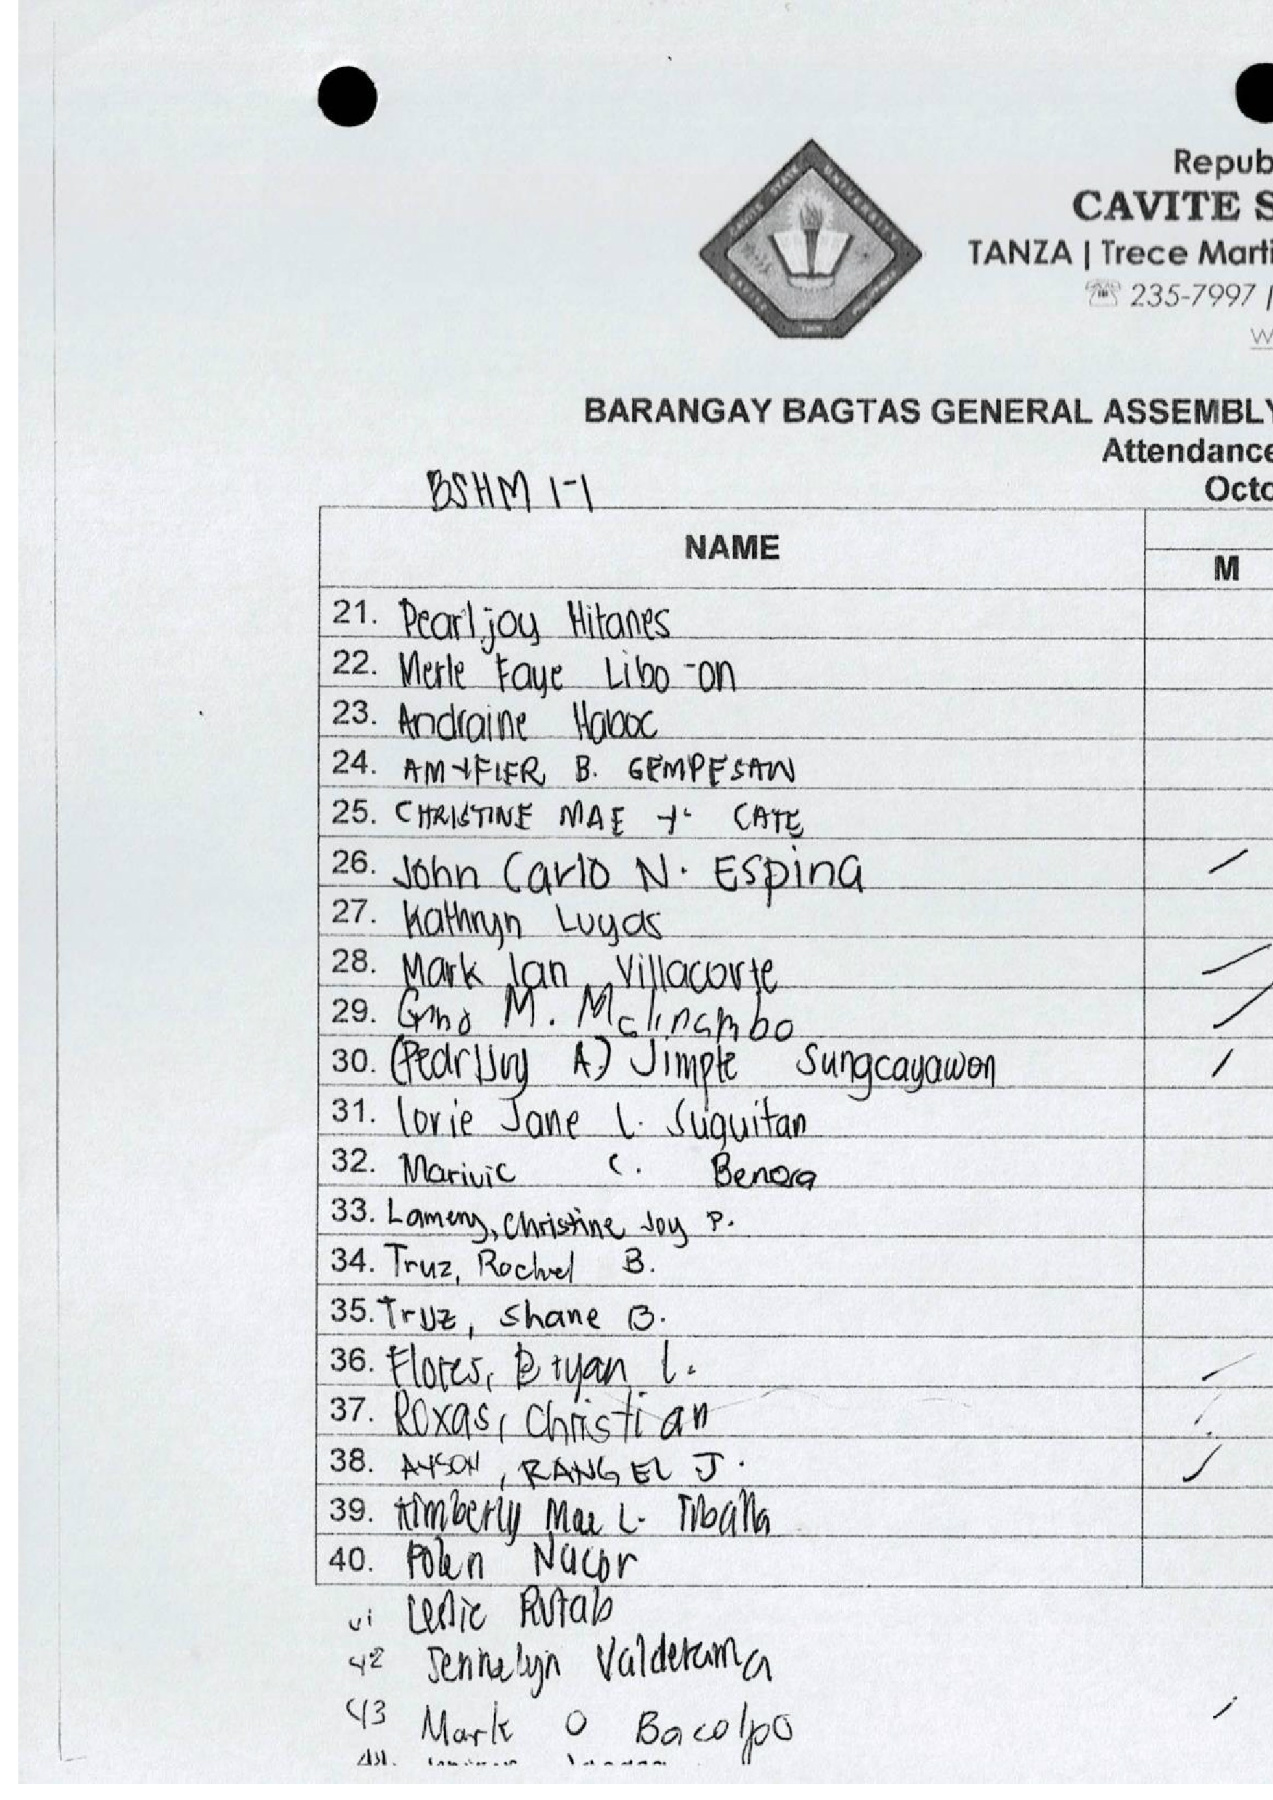 Repub
CAVITE S
TANZA | Trece Marti
☏ 235-7997 |
W
BARANGAY BAGTAS GENERAL ASSEMBLY
Attendance
Octo
BSHM 1-1
NAME
M
21. Pearl joy Hitanes
22. Merle Faye Libo-on
23. Andraine Haboc
24. B. GEMPESAW
25. CHRISTINE MAE Y. CATE
26. John Carlo N. Espina
27. Kathryn Lugas
28. Mark Ian Villacorte
29. M. Malinambo
30. A) Jimple Sungcayawon
31. Lorie Jane L. Suguitan
32. Marivic C. Benosa
33. Christine Joy P.
34. Truz, Rochel B.
35. Truz, Shane B.
36. Flores, Bryan L.
37. Roxas, Christian
38. AYSON, RANGEL J.
39. Kimberly Mae L.
40. Nucor
41 Leslie
42 Jennelyn Valderama
43 Mark O Bacolpo